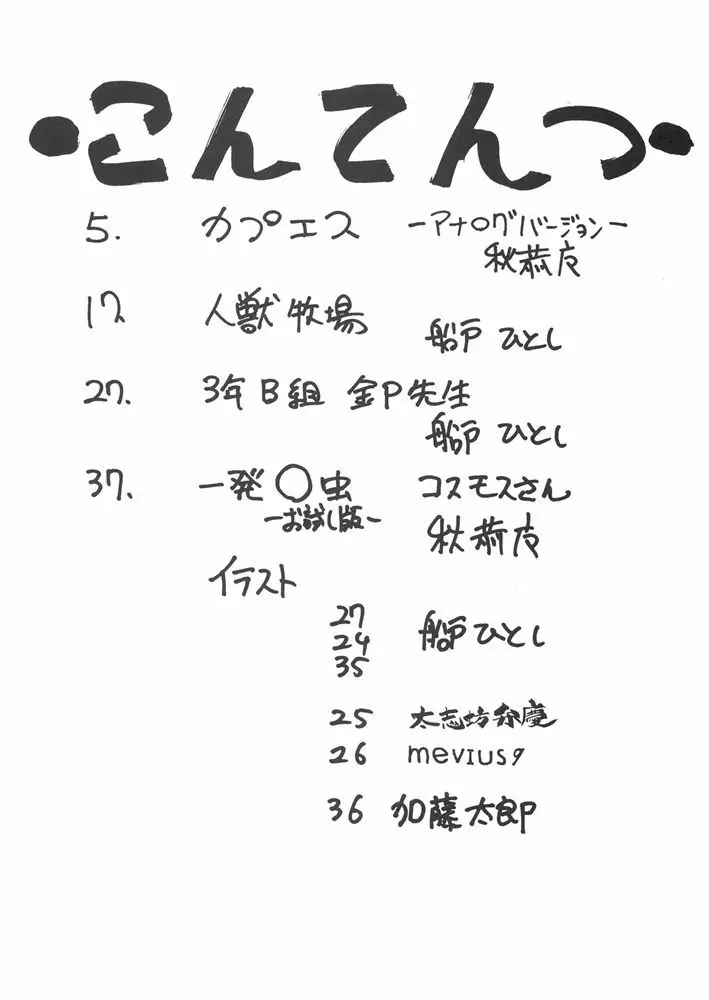 ・こんてんつ・
5. カプエス -アナログバージョン-
秋恭床
17. 人獣牧場
船戸ひとし
27. 3年B組 金P先生
船戸ひとし
37. 一発〇虫 コスモスさん
-お試し版-
秋恭床
イラスト
27
24 船戸ひとし
35
25 太志坊弁慶
26 mevius9
36 加藤太郎